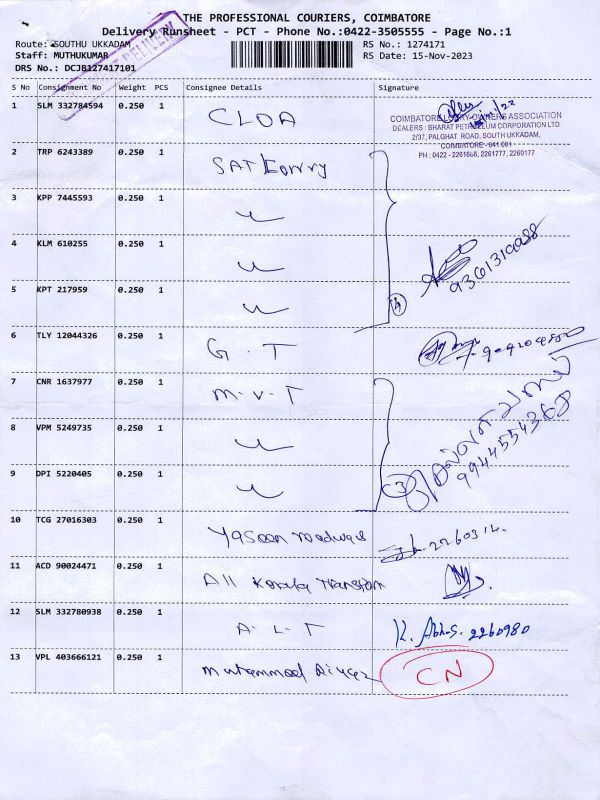 THE PROFESSIONAL COURIERS, COIMBATORE
Delivery Runsheet - PCT - Phone No.:0422-3505555 - Page No.:1
Route: SOUTHU UKKADAM RS No.: 1274171
Staff: MUTHUKUMAR RS Date: 15-Nov-2023
DRS No.: DCJB127417101
S No Consignment No Weight PCS Consignee Details Signature
1 SLM 332784594 0.250 1 CLOA
COIMBATORE LORRY OWNERS ASSOCIATION
DEALERS : BHARAT PETROLEUM CORPORATION LTD
2/37, PALGHAT ROAD, SOUTH UKKADAM,
COIMBATORE - 641 001
PH : 0422 - 2261666, 2261777, 2260177
2 TRP 6243389 0.250 1 SAT Lorry
3 KPP 7445593 0.250 1
4 KLM 610255 0.250 1
5 KPT 217959 0.250 1 4
6 TLY 12044326 0.250 1 G. T
7 CNR 1637977 0.250 1 M. V. T
8 VPM 5249735 0.250 1
9944554368
9 DPI 5220405 0.250 1 3
10 TCG 27016303 0.250 1 2260314.
11 ACD 90024471 0.250 1 All Kerala Transport
12 SLM 332780938 0.250 1 A. L. T K. Abhus. 2260980
13 VPL 403666121 0.250 1 CN